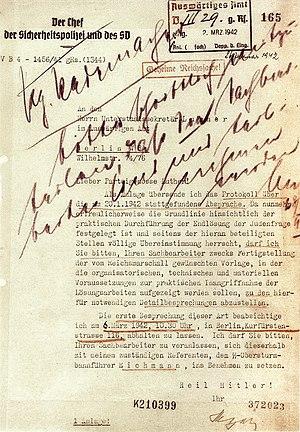 Der Chef
der Sicherheitspolizei und des SD
Auswärtiges Amt
D III 29. g. Rs.
2. MRZ. 1942
165
IV B 4 - 1456/42 gRs. (1344)
Geheime Reichssache!
An den
Herrn Unterstaatssekretär Luther
im Auswärtigen Amt
Berlin
Wilhelmstr. 74/76
Lieber Parteigenosse Luther!
Als Anlage übersende ich das Protokoll über
die am 20.1.1942 stattgefundene Absprache. Da nunmehr
erfreulicherweise die Grundlinie hinsichtlich der
praktischen Durchführung der Endlösung der Judenfrage
festgelegt ist und seitens der hieran beteiligten
Stellen völlige Übereinstimmung herrscht, darf ich
Sie bitten, Ihren Sachbearbeiter zwecks Fertigstellung
der vom Reichsmarschall gewünschten Vorlage, in
der die organisatorischen, technischen und materiellen
Voraussetzungen zur praktischen Inangriffnahme der
Lösungsarbeiten aufgezeigt werden sollen, zu den hier-
für notwendigen Detailbesprechungen abzustellen.
Die erste Besprechung dieser Art beabsichtige
ich am 6. März 1942, 10.30 Uhr, in Berlin, Kurfürsten-
strasse 116, abhalten zu lassen. Ich darf Sie bitten,
Ihren Sachbearbeiter zu veranlassen, sich dieserhalb
mit meinem zuständigen Referenten, dem SS-Obersturm-
bannführer Eichmann, ins Benehmen zu setzen.
Heil Hitler!
Ihr
K210399
372023
1 Anlage!